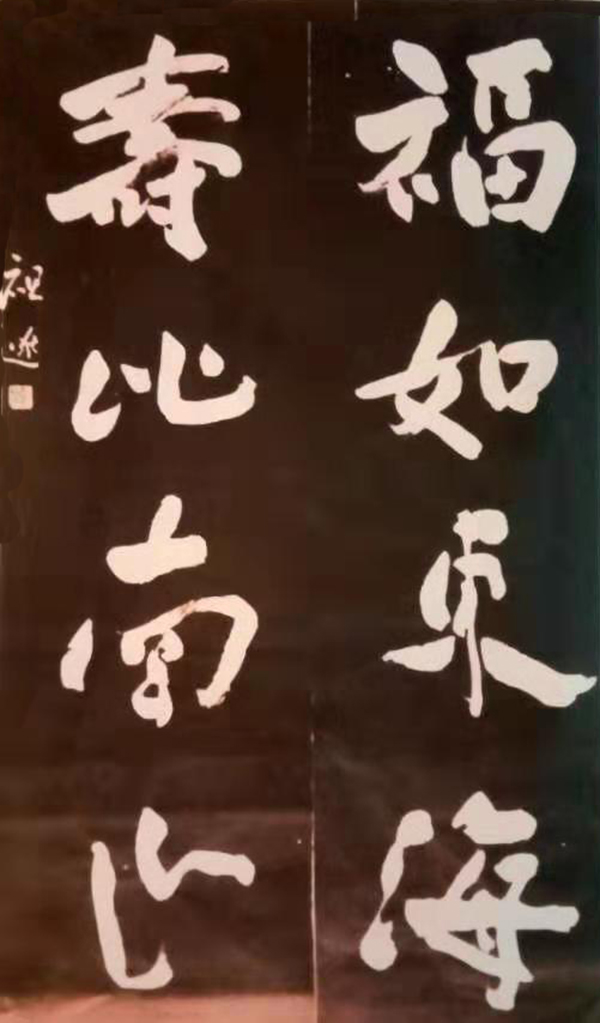 福如東海
壽比南山
祖逖